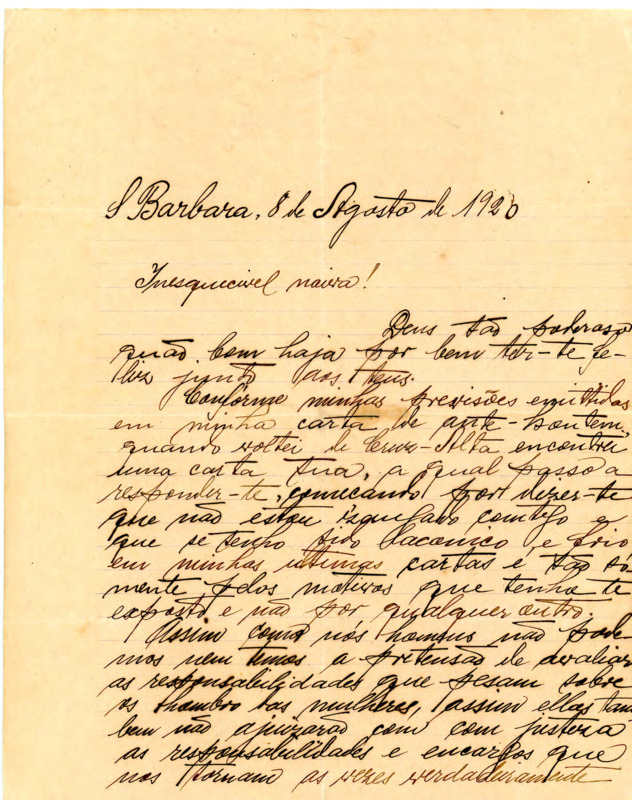 S Barbara, 8 de Agosto de 1920
Inesquecivel noiva!
Deus tão poderoso
quão bom haja por bem ter-te fe-
liz junto aos teus.
Conforme minhas previsões emittidas
em minha carta de ante-hontem,
quando voltei de Cruz-Alta encontrei
uma carta tua, a qual passo a
responder-te, começando por dizer-te
que não estou comtigo e
que se tenho sido laconico e frio
em minhas ultimas cartas é tão so-
mente pelos motivos que tenho te
exposto e não por qualquer outro.
Assim como nós homens não pode-
mos nem temos a pretensão de avaliar
as responsabilidades que pesam sobre
os hombro das mulheres, assim ellas tam
bem não ajuizarão com com justera
as responsabilidades e encargos que
nos tornam as vezes verdadeiramente